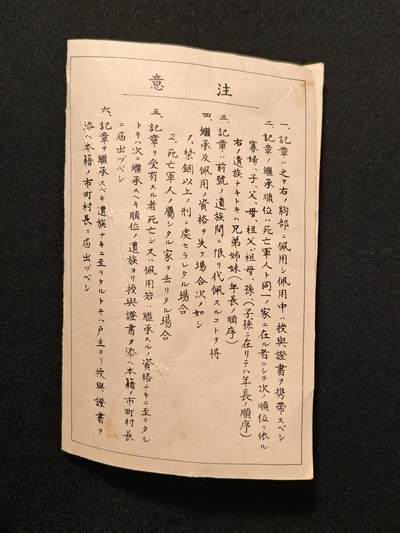 注意
一、記章ハ之ヲ右ノ胸部ニ佩用シ佩用中ハ授與證書ヲ携帶スベシ
二、記章ノ繼承順位ハ死亡軍人ト同一ノ家ニ在ル者ニシテ次ノ順位ニ依ル
寡婦、子、父、母、祖父、祖母、孫（子孫ニ在リテハ年長ノ順序）
右ノ遺族ナキトキハ兄弟姉妹（年長ノ順序）
三、記章ハ前號ノ遺族間ニ限リ代佩スルコトヲ得
四、繼承及佩用ノ資格ヲ失フ場合次ノ如シ
1. 禁錮以上ノ刑ニ處セラレタル場合
2. 死亡軍人ノ屬シタル家ヲ去リタル場合
五、記章ヲ受有スル者死亡シ又ハ佩用若ハ繼承スルノ資格ナキニ至リタル
トキハ次ニ繼承スベキ順位ノ遺族ヨリ授與證書ヲ添ヘ本籍ノ市町村長
ニ屆出ヅベシ
六、記章ヲ繼承スベキ遺族ナキニ至リタルトキハ戸主ヨリ授與證書ヲ
添ヘ本籍ノ市町村長ニ屆出ヅベシ